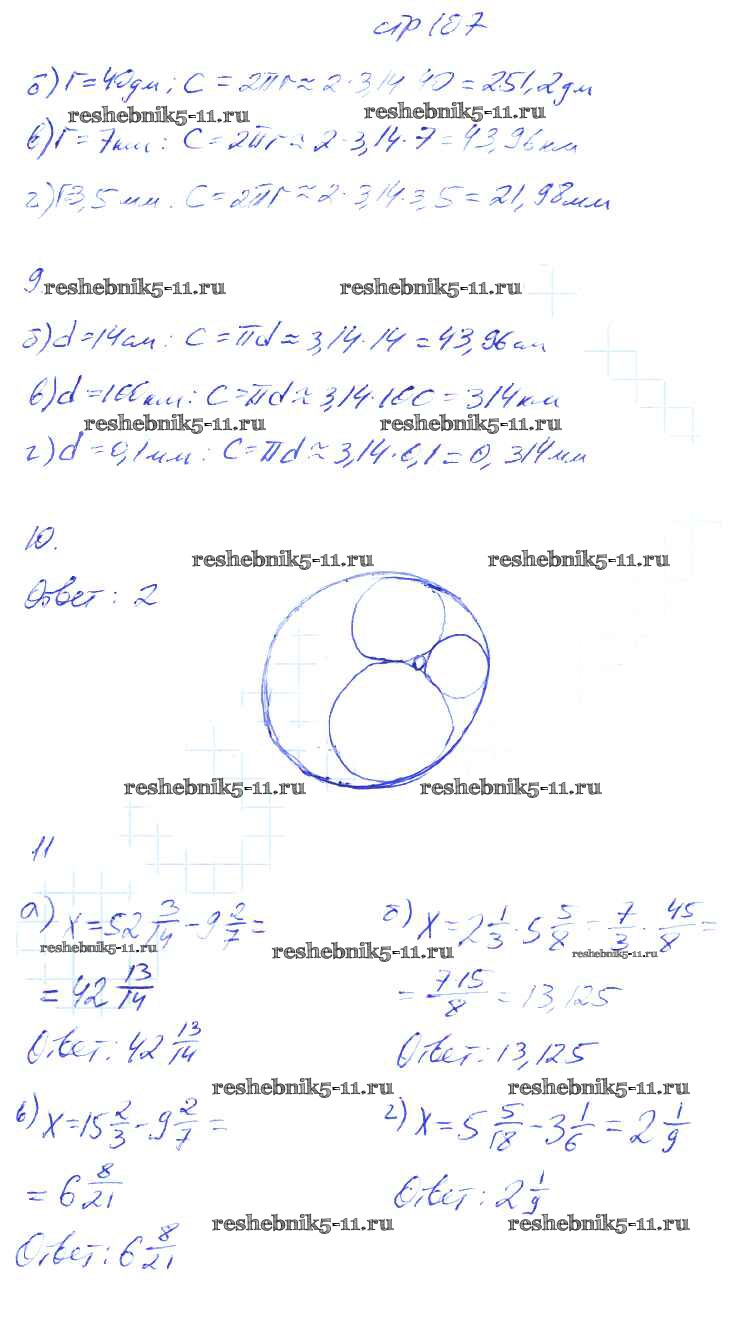 стр 187
б) r=40дм; C = 2πr ≈ 2·3,14·40 = 251,2дм
reshebnik5-11.ru reshebnik5-11.ru
в) r=7км: C = 2πr ≈ 2·3,14·7 = 43,96км
г) r=3,5мм. C = 2πr ≈ 2·3,14·3,5 = 21,98мм
9. reshebnik5-11.ru reshebnik5-11.ru
б) d=14см: C = πd ≈ 3,14·14 = 43,96см
в) d=100км: C = πd ≈ 3,14·100 = 314км
reshebnik5-11.ru reshebnik5-11.ru
г) d=0,1мм: C = πd ≈ 3,14·0,1 = 0,314мм
10.
reshebnik5-11.ru reshebnik5-11.ru
Ответ: 2
reshebnik5-11.ru reshebnik5-11.ru
11
а) x=52 3/14 - 9 2/7 =
reshebnik5-11.ru
= 42 13/14
Ответ: 42 13/14
б) x=2 1/3 · 5 5/8 = 7/3 · 45/8 =
reshebnik5-11.ru reshebnik5-11.ru
= 7·15/8 = 13,125
Ответ: 13,125
reshebnik5-11.ru reshebnik5-11.ru
в) x=15 2/3 - 9 2/7 =
= 6 8/21
Ответ: 6 8/21
г) x=5 5/18 - 3 1/6 = 2 1/9
Ответ: 2 1/9
reshebnik5-11.ru reshebnik5-11.ru